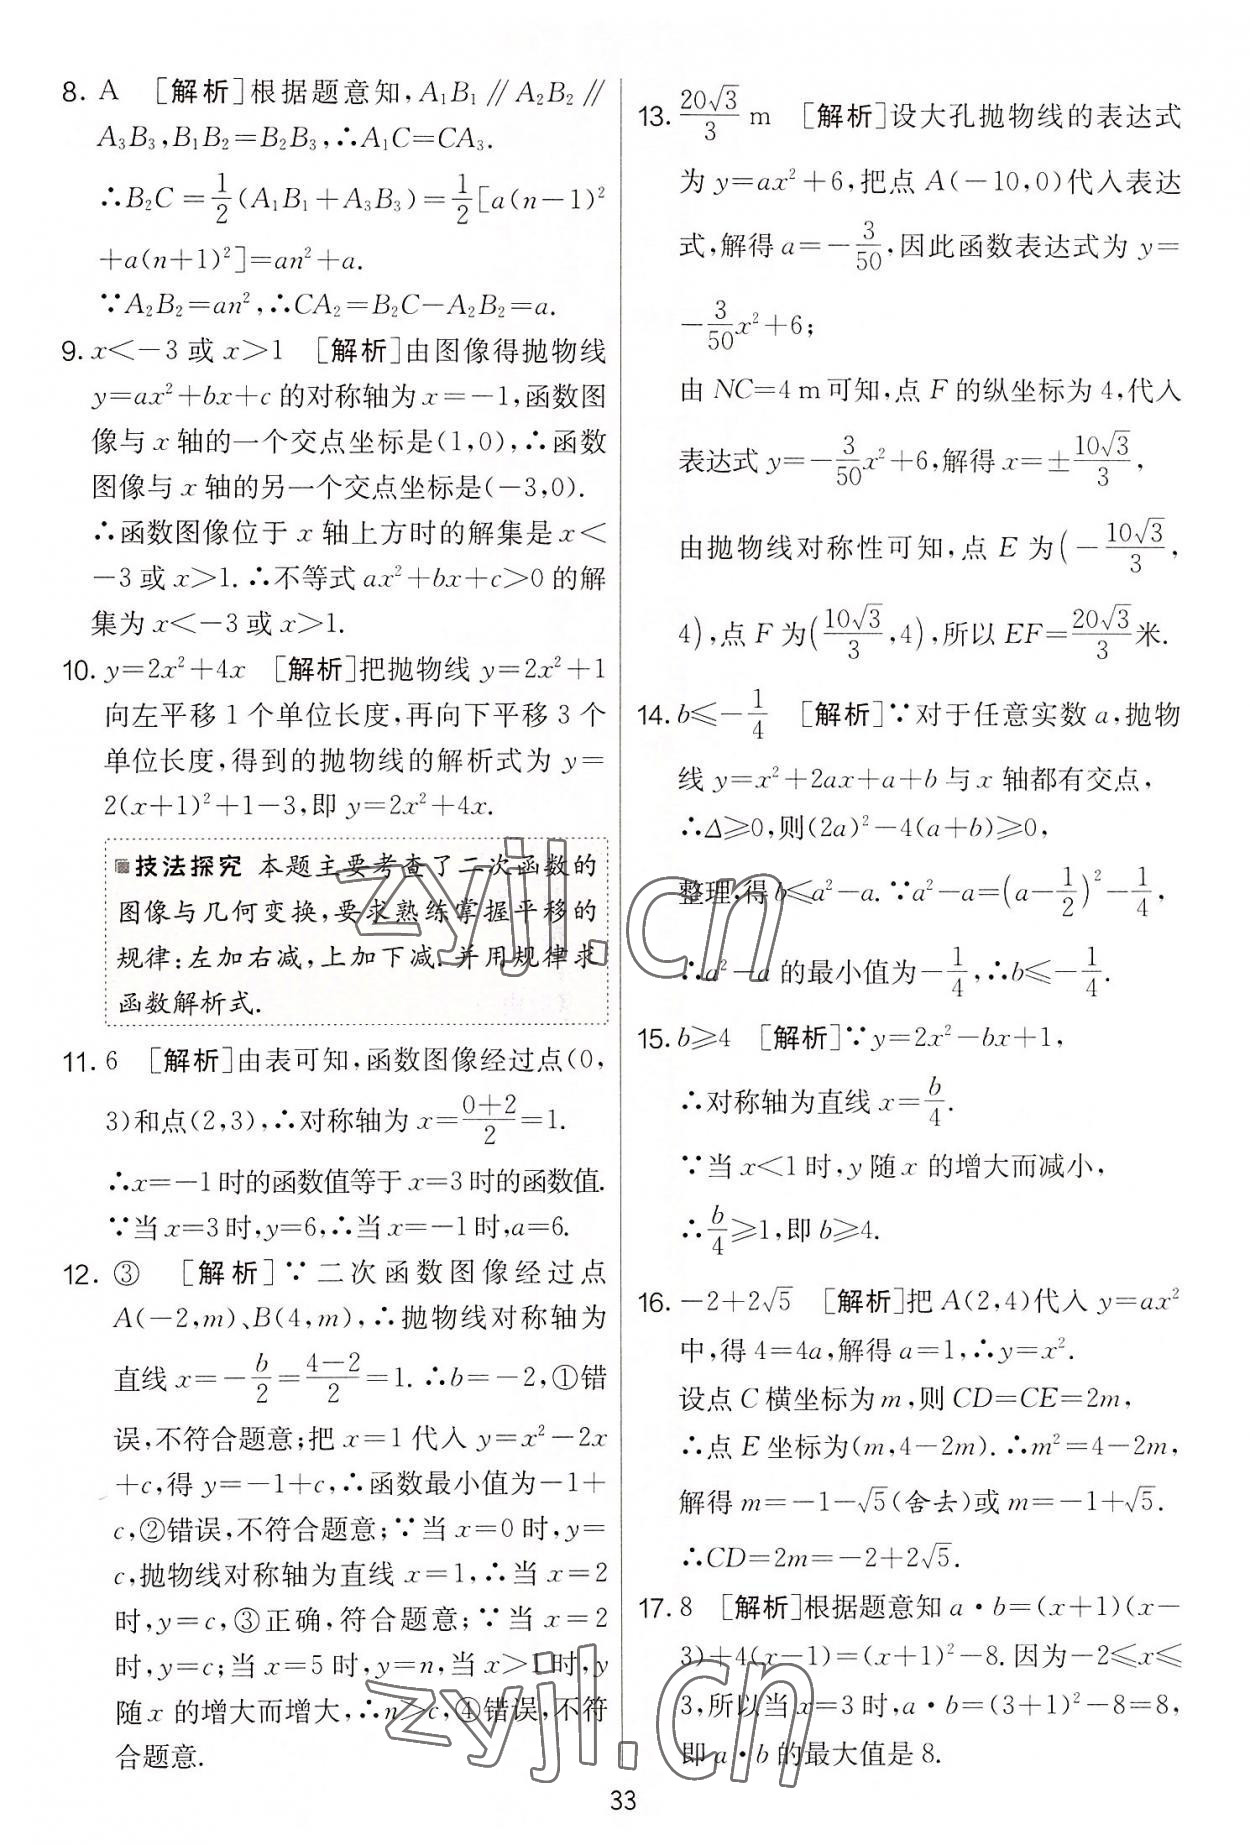 8. A [解析]根据题意知,A₁B₁∥A₂B₂∥
A₃B₃,B₁B₂=B₂B₃,∴A₁C=CA₃.
∴B₂C=1/2(A₁B₁+A₃B₃)=1/2[a(n-1)²
+a(n+1)²]=an²+a.
∵A₂B₂=an²,∴CA₂=B₂C-A₂B₂=a.
9. x<-3或x>1 [解析]由图像得抛物线
y=ax²+bx+c的对称轴为x=-1,函数图
像与x轴的一个交点坐标是(1,0),∴函数
图像与x轴的另一个交点坐标是(-3,0).
∴函数图像位于x轴上方时的解集是x<
-3或x>1.∴不等式ax²+bx+c>0的解
集为x<-3或x>1.
10. y=2x²+4x [解析]把抛物线y=2x²+1
向左平移1个单位长度,再向下平移3个
单位长度,得到的抛物线的解析式为y=
2(x+1)²+1-3,即y=2x²+4x.
技法探究 本题主要考查了二次函数的
图像与几何变换,要求熟练掌握平移的
规律:左加右减,上加下减.并用规律求
函数解析式.
11. 6 [解析]由表可知,函数图像经过点(0,
3)和点(2,3),∴对称轴为x=(0+2)/2=1.
∴x=-1时的函数值等于x=3时的函数值.
∵当x=3时,y=6,∴当x=-1时,a=6.
12. ③ [解析]∵二次函数图像经过点
A(-2,m)、B(4,m),∴抛物线对称轴为
直线x=-b/2=(4-2)/2=1.∴b=-2,①错
误,不符合题意;把x=1代入y=x²-2x
+c,得y=-1+c,∴函数最小值为-1+
c,②错误,不符合题意;∵当x=0时,y=
c,抛物线对称轴为直线x=1,∴当x=2
时,y=c,③正确,符合题意;∵当x=2
时,y=c;当x=5时,y=n,当x>1时,y
随x的增大而增大,∴n>c,④错误,不符
合题意.
13. 20√3/3 m [解析]设大孔抛物线的表达式
为y=ax²+6,把点A(-10,0)代入表达
式,解得a=-3/50,因此函数表达式为y=
-3/50x²+6;
由NC=4 m可知,点F的纵坐标为4,代入
表达式y=-3/50x²+6,解得x=±10√3/3,
由抛物线对称性可知,点E为(-10√3/3,
4),点F为(10√3/3,4),所以EF=20√3/3米.
14. b≤-1/4 [解析]∵对于任意实数a,抛物
线y=x²+2ax+a+b与x轴都有交点,
∴Δ≥0,则(2a)²-4(a+b)≥0,
整理,得b≤a²-a.∵a²-a=(a-1/2)²-1/4,
∴a²-a的最小值为-1/4,∴b≤-1/4.
15. b≥4 [解析]∵y=2x²-bx+1,
∴对称轴为直线x=b/4.
∵当x<1时,y随x的增大而减小,
∴b/4≥1,即b≥4.
16. -2+2√5 [解析]把A(2,4)代入y=ax²
中,得4=4a,解得a=1,∴y=x².
设点C横坐标为m,则CD=CE=2m,
∴点E坐标为(m,4-2m).∴m²=4-2m,
解得m=-1-√5(舍去)或m=-1+√5.
∴CD=2m=-2+2√5.
17. 8 [解析]根据题意知a·b=(x+1)(x-
3)+4(x-1)=(x+1)²-8.因为-2≤x≤
3,所以当x=3时,a·b=(3+1)²-8=8,
即a·b的最大值是8.
zyjl.cn
zyjl.cn
33